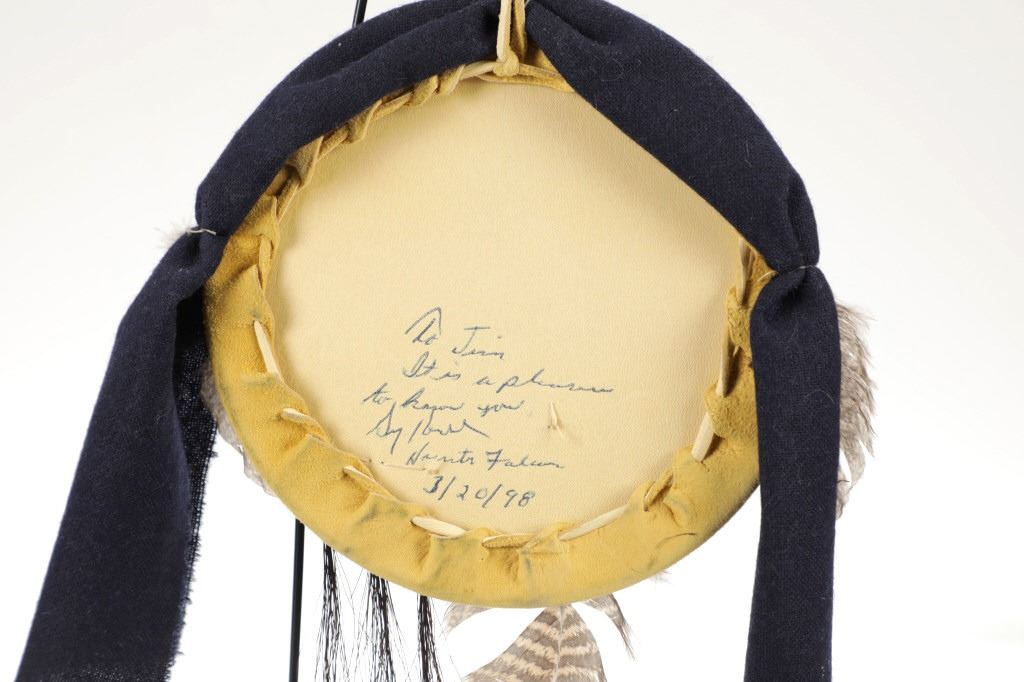 To Jim
It is a pleasure
to know you
Hunts Falcon
3/20/98